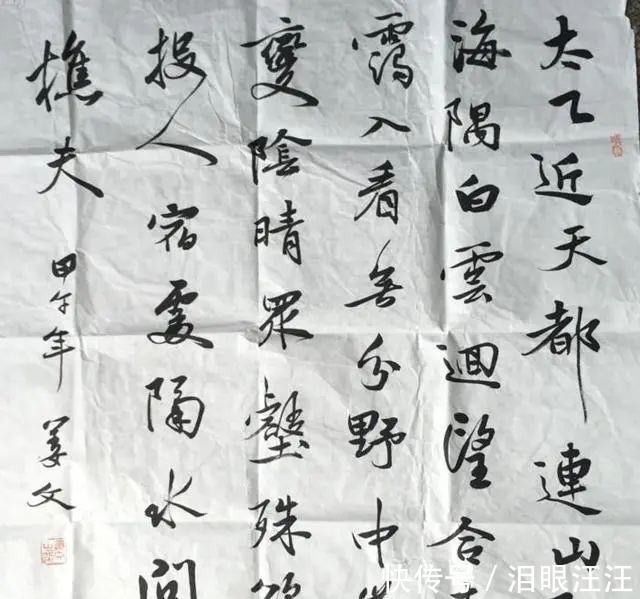 太乙近天都連山
海隅白雲迴望合
靄入看無分野中
變陰晴眾壑殊
投人宿處隔水問
樵夫
甲午年 姜文
快传号/泪眼汪汪